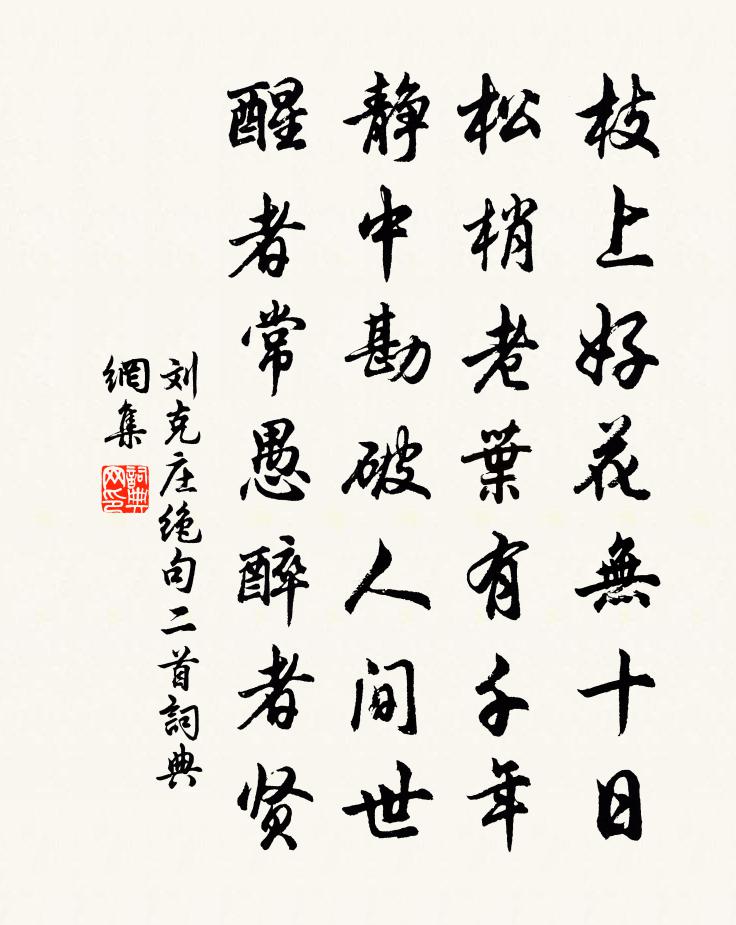 枝上好花無十日
松梢老葉有千年
静中勘破人间世
醒者常愚醉者贤
刘克庄绝句二首詞典
網集
詞典
网印